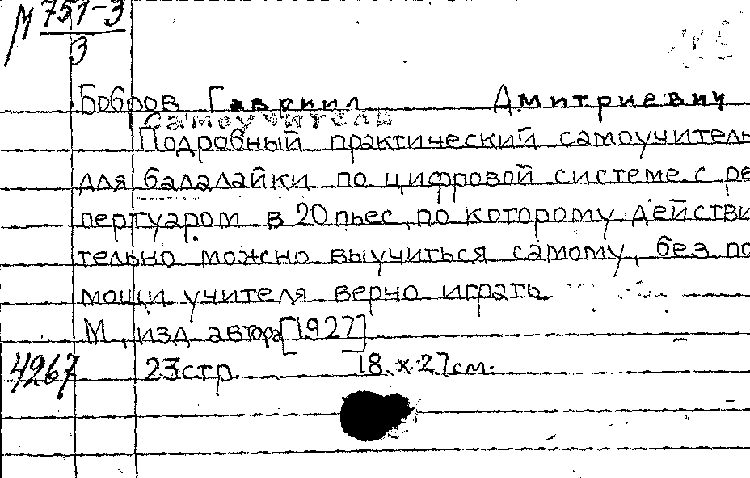 М 757-3
3
Бобров Гавриил Дмитриевич
Самоучитель
Подробный практический самоучитель
для балалайки по цифровой системе с ре
пертуаром в 20 пьес, по которому действи
тельно можно выучиться самому, без по
мощи учителя верно играть
М, изд автора [1927]
4267 23 стр. 18 х 27 см.